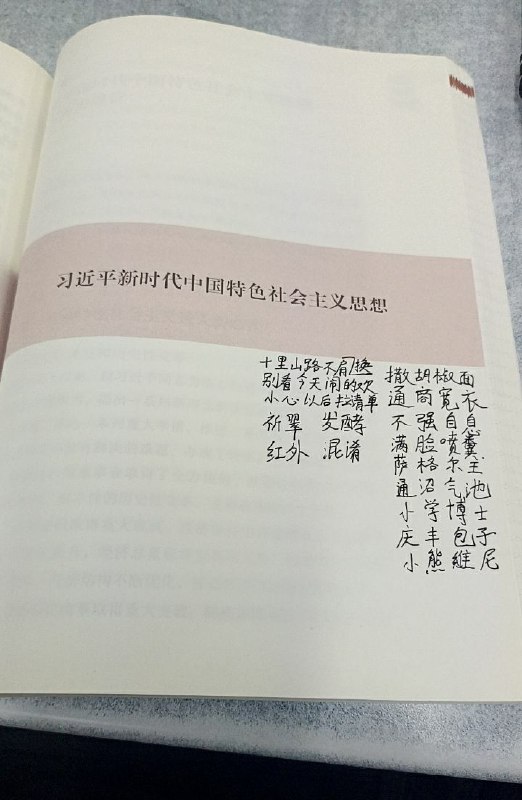 习近平新时代中国特色社会主义思想
十里山路不肩换
别看今天闹的欢
小心以后拉清单
祈翠 发酵
红外 混淆
撒胡椒面
通商宽衣
不强自息
满脸喷粪
萨格尔王
通沼气池
小学博士
庆丰包子
小熊維尼